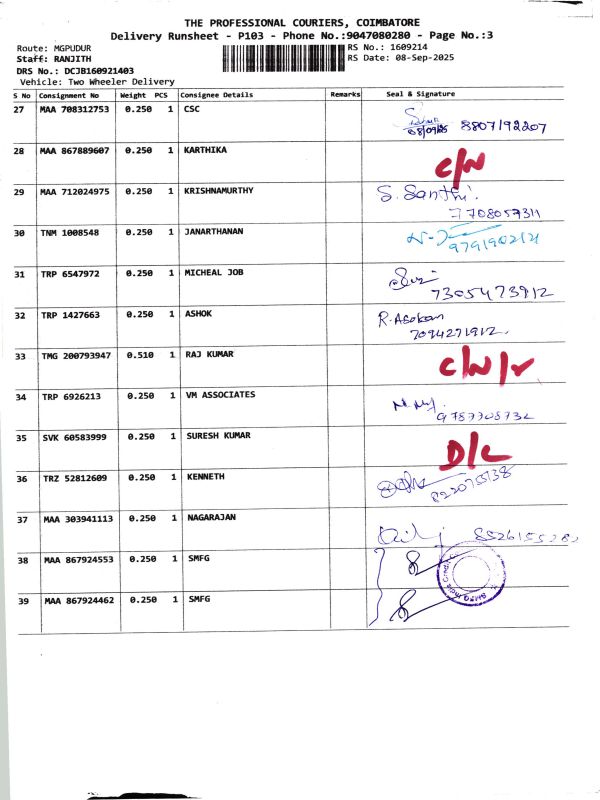 THE PROFESSIONAL COURIERS, COIMBATORE
Delivery Runsheet - P103 - Phone No.:9047080280 - Page No.:3
Route: MGPUDUR RS No.: 1609214
Staff: RANJITH RS Date: 08-Sep-2025
DRS No.: DCJB160921403
Vehicle: Two Wheeler Delivery
S No Consignment No Weight PCS Consignee Details Remarks Seal & Signature
27 MAA 708312753 0.250 1 CSC
08/09/25 8807192207
28 MAA 867889607 0.250 1 KARTHIKA C/N
29 MAA 712024975 0.250 1 KRISHNAMURTHY S. Santhi.
7708057311
30 TNM 1008548 0.250 1 JANARTHANAN
9791902121
31 TRP 6547972 0.250 1 MICHEAL JOB
7305473912
32 TRP 1427663 0.250 1 ASHOK R. Asokan
7094271912.
33 TMG 200793947 0.510 1 RAJ KUMAR C/N/r
34 TRP 6926213 0.250 1 VM ASSOCIATES
9787708732
35 SVK 60583999 0.250 1 SURESH KUMAR D/L
36 TRZ 52812609 0.250 1 KENNETH
37 MAA 303941113 0.250 1 NAGARAJAN
38 MAA 867924553 0.250 1 SMFG
39 MAA 867924462 0.250 1 SMFG